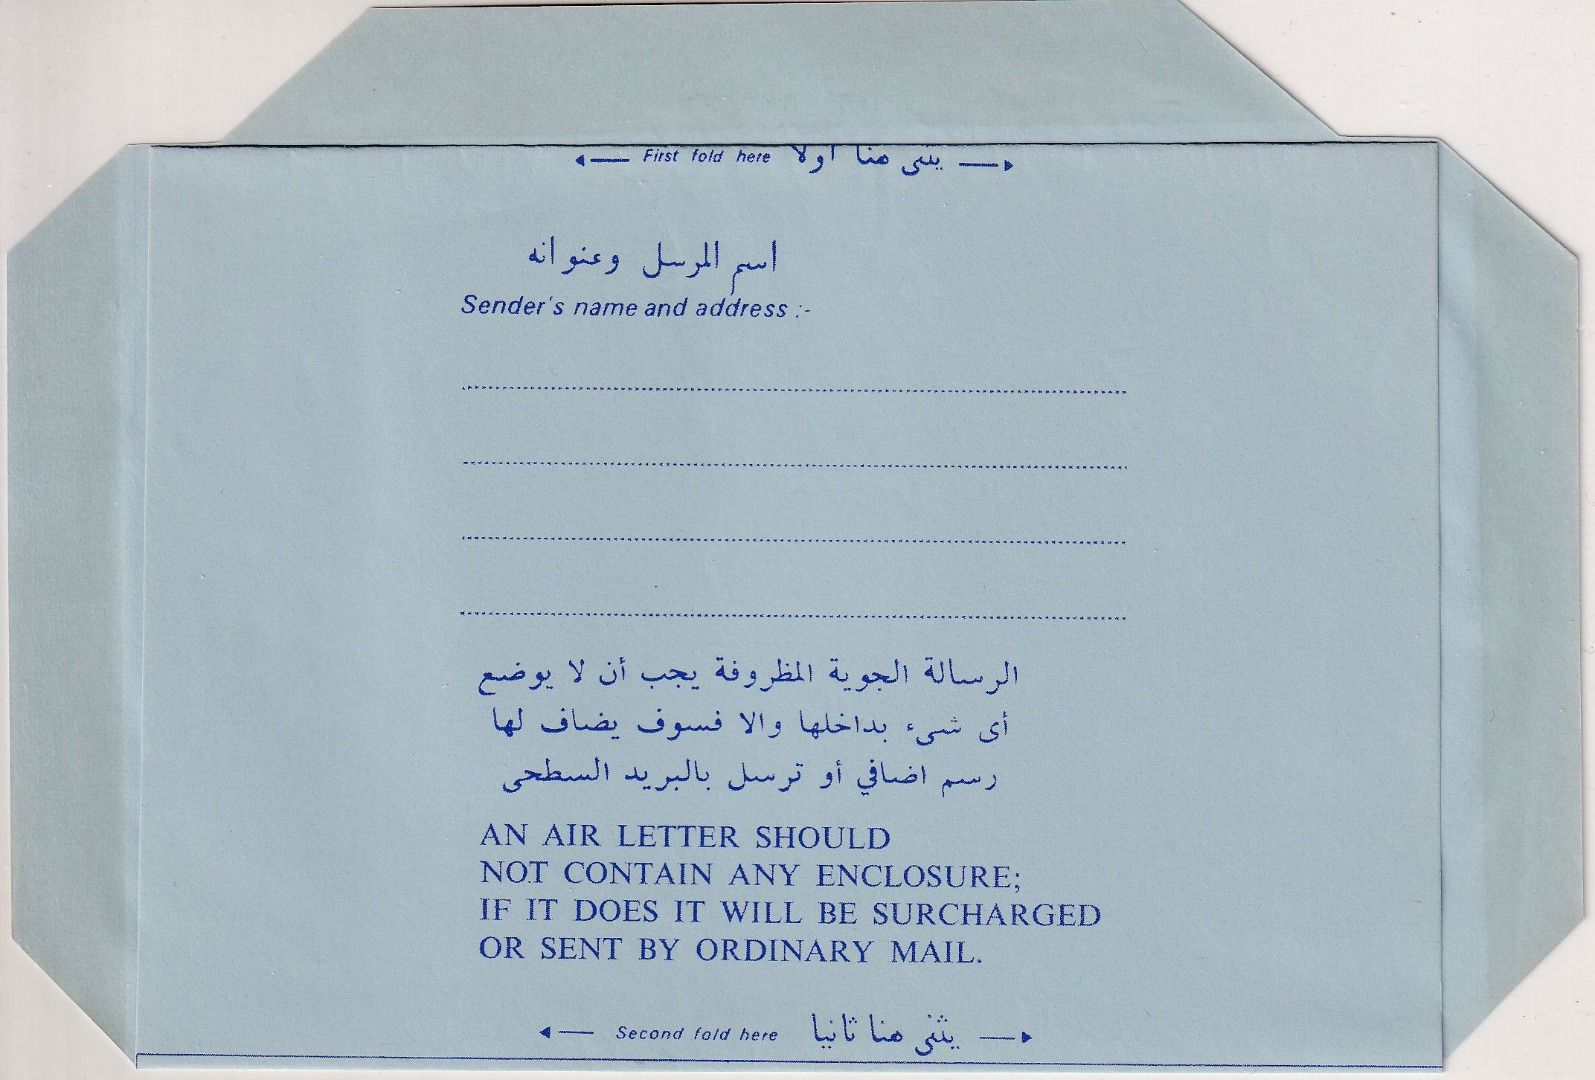 First fold here يثنى هنا أولا
اسم المرسل وعنوانه
Sender's name and address :-
الرسالة الجوية المظروفة يجب أن لا يوضع
أى شىء بداخلها والا فسوف يضاف لها
رسم اضافي أو ترسل بالبريد السطحى
AN AIR LETTER SHOULD
NOT CONTAIN ANY ENCLOSURE;
IF IT DOES IT WILL BE SURCHARGED
OR SENT BY ORDINARY MAIL.
Second fold here يثنى هنا ثانيا